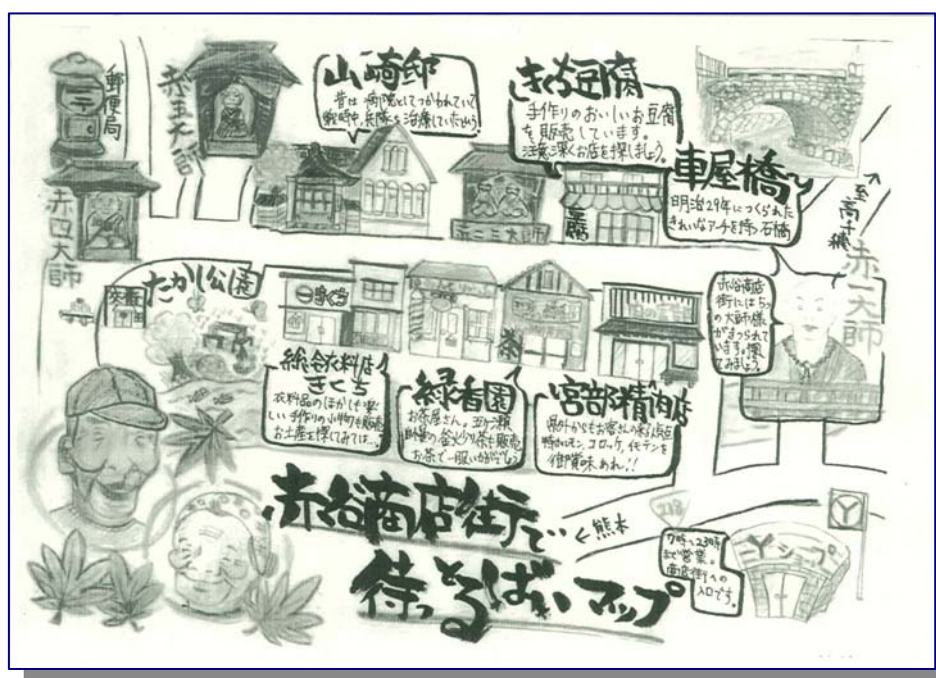 郵便局
赤五大師
赤四大師
山崎邸
昔は病院としてつかわれていて
戦時中、兵隊を治療していたという。
きくち豆腐
手作りのおいしいお豆腐
を販売しています。
注意深くお店を探しましょう。
車屋橋
明治29年につくられた
きれいなアーチを持つ石橋
至高千穂
赤二三大師
豆腐
赤一大師
赤谷商店
街には5つ
の大師様
がまつられて
います。探し
てみましょう。
交番
たかし公園
きくち
茶
総合衣料店
きくち
衣料品のほかにも楽
しい手作りの小物も販売
お土産を探してみては…
緑香園
お茶屋さん。五ヶ瀬
お茶で一服いかがでしょう
宮部精肉店
県外からもお客さんの来る店
特にホルモン、コロッケ、イモテンを
御賞味あれ!!
赤谷商店街で
待っとるばいマップ
←熊本
218
Yショップ
7時〜23時
まで営業。
商店街への
入口です。
Y